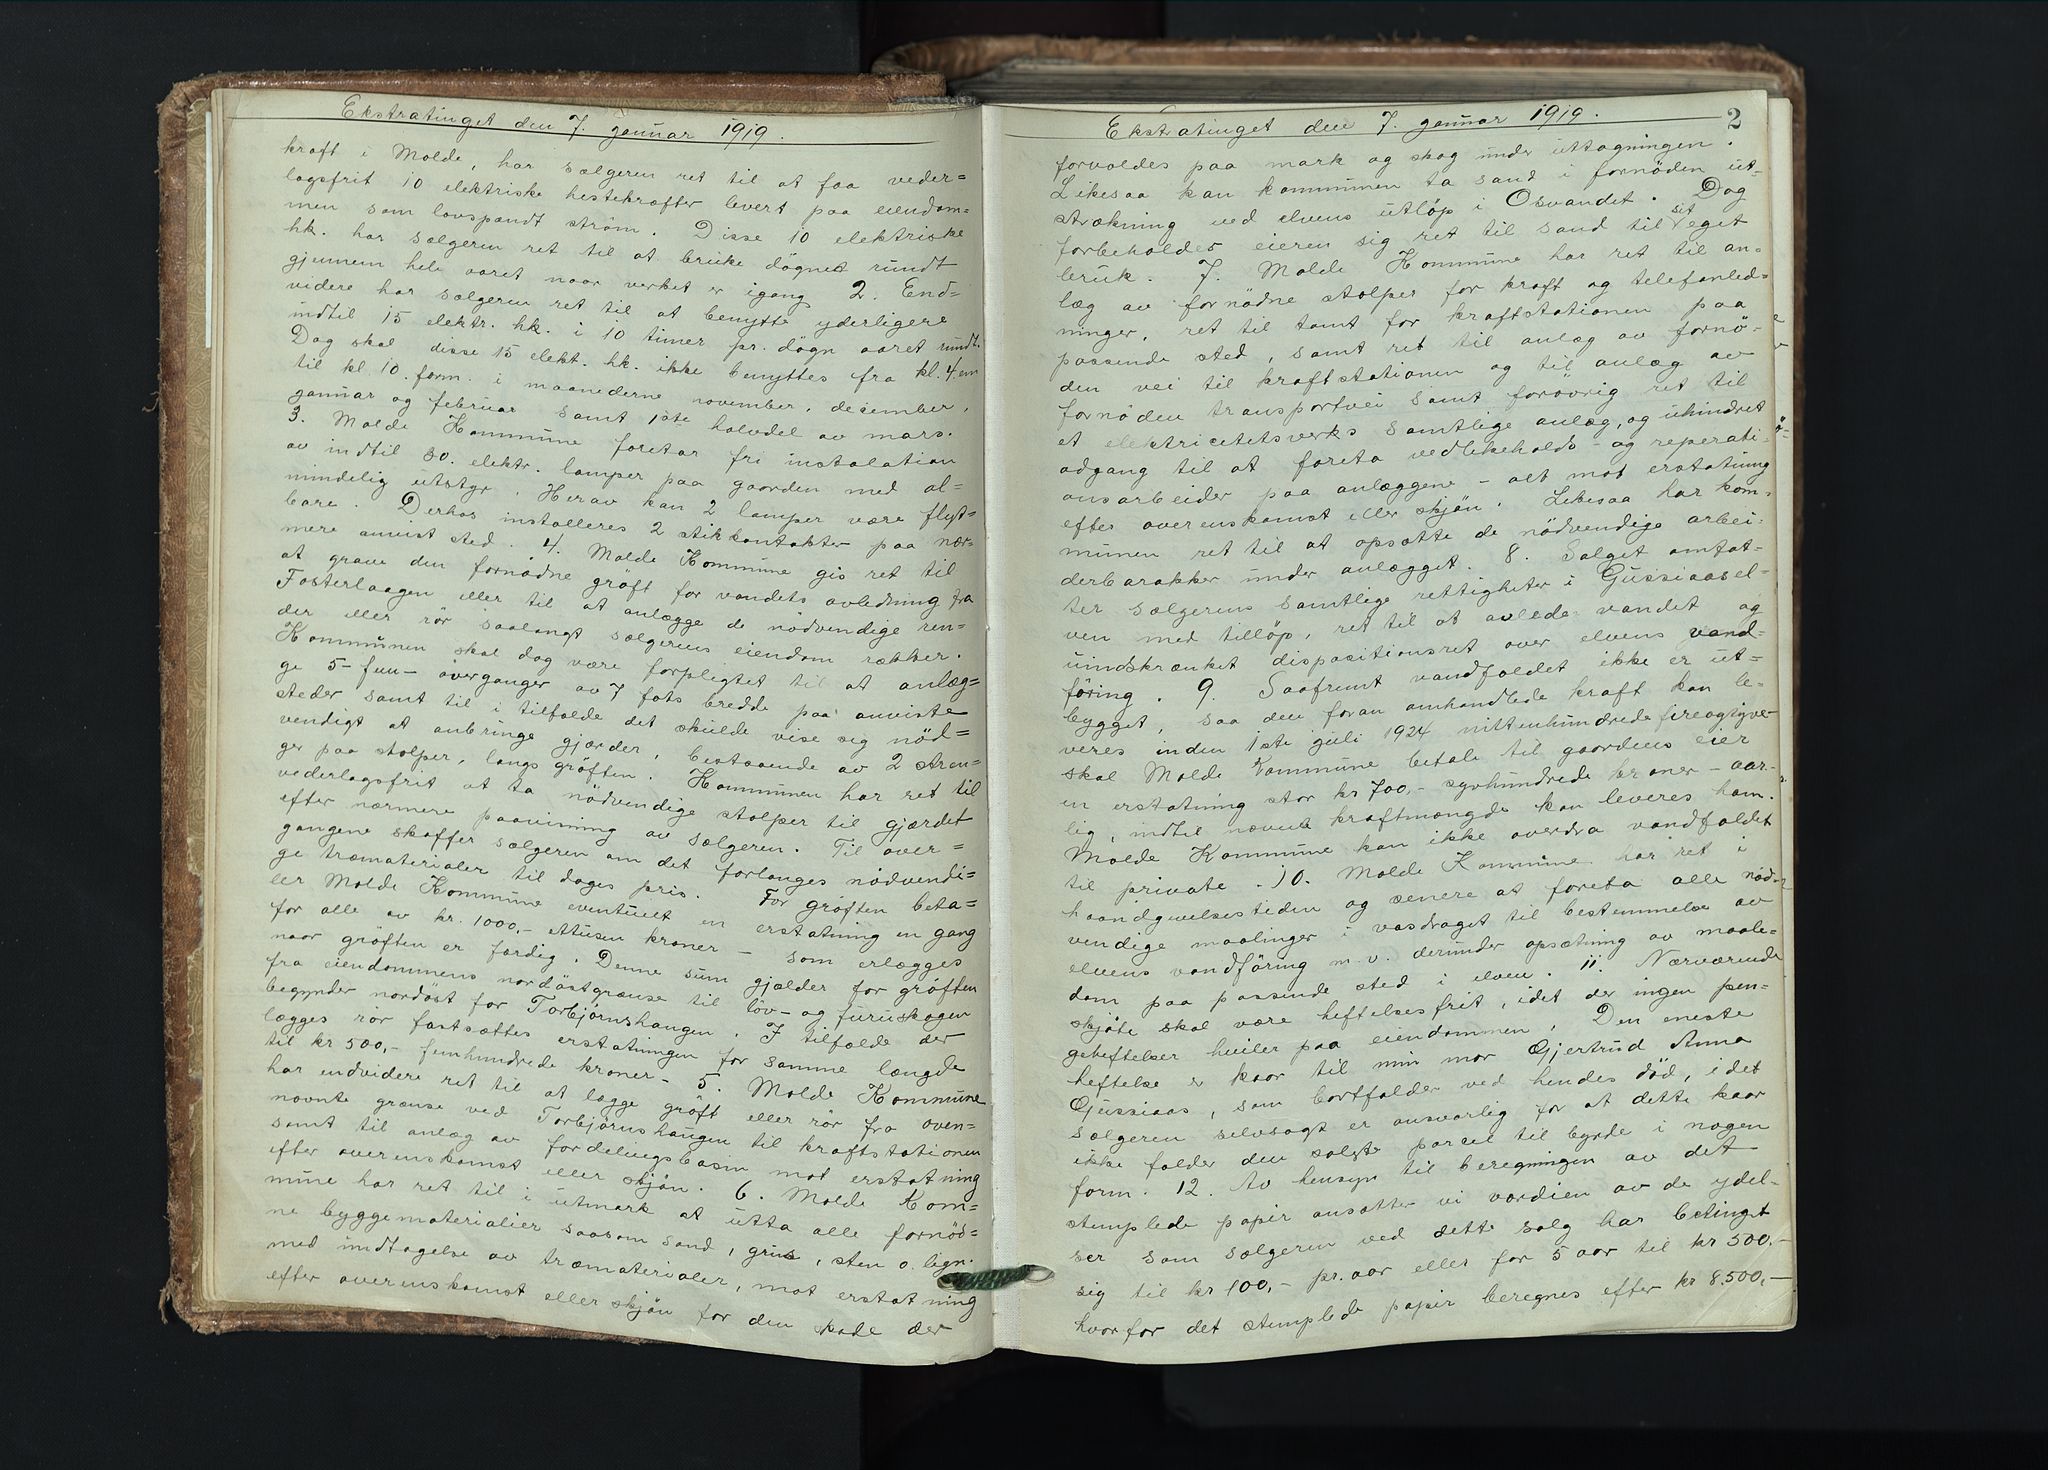 Ekstratinget den 7. januar 1919.
kraft i Molde, har sælgeren ret til at faa veder=
lagsfrit 10 elektriske hestekræfter levert paa eiendom=
men som lavspændt ström. Disse 10 elektriske
hk. har sælgeren ret til at bruke dögnet rundt
gjennem hele aaret naar verket er igang 2. End=
videre har sælgeren ret til at benytte yderligere
indtil 15 elektr. hk. i 10 timer pr. dögn aaret rundt.
Dog skal disse 15 elekt. hk. ikke benyttes fra kl. 4. em
til kl. 10. form. i maanederne november, december,
januar og februar samt 1ste halvdel av mars.
3. Molde Kommune foretar fri instalation
av indtil 30. elektr. lamper paa gaarden med al=
mindelig utstyr. Herav kan 2 lamper være flyt=
bare. Derhos installeres 2 stikkontakter paa nær=
mere anvist sted. 4. Molde Kommune gis ret til
at grave den fornödne gröft for vandets avledning fra
Fosterlaagen eller til at anlægge de nödvendige ren=
der eller rör saalangt sælgerens eiendom rækker.
Kommunen skal dog være forpligtet til at anlæg=
ge 5 - fem - overganger av 7 fots bredde paa anviste
steder samt til i tilfælde det skulde vise sig nöd=
vendigt at anbringe gjærder, bestaaende av 2 stren=
ger paa stolper, langs gröften. Kommunen har ret til
vederlagsfrit at ta nödvendige stolper til gjærdet
efter nærmere paavisning av sælgeren. Til over=
gangene skaffer sælgeren om det forlanges nödvendi=
ge træmaterialer til dages pris. For gröften beta=
ler Molde Kommune eventuelt en erstatning en gang
for alle av kr. 1000,- ettusen kroner - som erlægges
naar gröften er færdig. Denne sum gjælder for gröften
fra eiendommens nordöstgrænse til löv- og furuskogen
begynder nordöst for Torbjörnshaugen. I tilfælde der
lægges rör fastsættes erstatningen for samme længde
til kr 500,- femhundrede kroner - 5. Molde Kommune
har endvidere ret til at lægge gröft eller rör fra oven=
nævnte grænse ved Torbjörnshaugen til kraftstationen
samt til anlæg av fordelingsbasin mot erstatning
efter overenskomst eller skjön. 6. Molde Kom=
mune har ret til i utmark at utta alle fornöd=
ne byggematerialier saasom sand, grus, sten o. lign.
med undtagelse av træmaterialer, mot erstatning
efter overenskomst eller skjön for den skade der
Ekstratinget den 7. januar 1919.
2
forvoldes paa mark og skog under uttagningen.
Likesaa kan kommunen ta sand i fornöden ut-
strækning ved elvens utlöp i Osvandet. Dog
forbeholder eieren sig ret til sand til sit eget
bruk. 7. Molde Kommune har ret til an=
læg av fornödne stolper for kraft og telefonled=
ninger, ret til tomt for kraftstationen paa
passende sted, samt ret til anlæg av fornö=
den vei til kraftstationen og til anlæg av
fornöden transportvei samt forövrig ret til
et elektricetetsverks samtlige anlæg, og uhindret
adgang til at foreta vedlikeholds- og reperati=
onsarbeider paa anlæggene - alt mot erstatning
efter overenskomst eller skjön. Likesaa har kom=
munen ret til at opsætte de nödvendige arbei=
derbarakker under anlægget. 8. Salget omfat=
ter sælgerens samtlige rettigheter i Gussiaasel=
ven med tillöp, ret til at avlede vandet og
uindskrænket dispositionsret over elvens vand=
föring. 9. Saafremt vandfaldet ikke er ut=
bygget, saa den foran omhandlede kraft kan le=
veres inden 1ste juli 1924 nittenhundredefireogtyve-
skal Molde Kommune betale til gaardens eier
en erstatning stor kr 700,- syvhundrede kroner - aar-
lig, indtil nævnte kraftmængde kan leveres ham.
Molde Kommune kan ikke overdra vandfaldet
til private. 10. Molde Kommune har ret i
haandgivelsestiden og senere at foreta alle nöd-
vendige maalinger i vasdraget til bestemmelse av
elvens vandföring m.v. derunder opsætning av maale=
dam paa passende sted i elven. 11. Nærværende
skjöte skal være heftelsesfrit, idet der ingen pen=
geheftelser hviler paa eiendommen. Den eneste
heftelse er kaar til min mor Gjertrud Anna
Gussiaas, som bortfalder ved hendes död, idet
sælgeren selvsagt er ansvarlig for at dette kaar
ikke falder den solgte parcel til byrde i nogen
form. 12. Av hensyn til beregningen av det
stemplede papir ansætter vi værdien av de ydel-
ser som sælgeren ved dette salg har betinget
sig til kr 100,- pr. aar eller for 5 aar til kr 500.-
hvorfor det stemplede papir beregnes efter kr 8.500,-